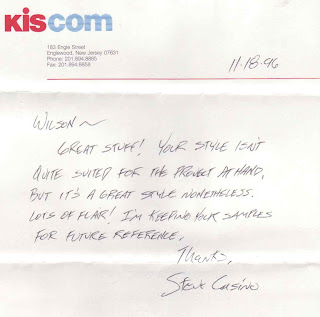 KISCOM
163 Engle Street
Englewood, New Jersey 07631
Phone: 201.894.8865
Fax: 201.894.8858
11-18-96
WILSON~
GREAT STUFF! YOUR STYLE ISN'T
QUITE SUITED FOR THE PROJECT AT HAND,
BUT IT'S A GREAT STYLE NONETHELESS.
LOTS OF FLAIR! I'M KEEPING YOUR SAMPLES
FOR FUTURE REFERENCE,
THANKS,
STEVE CASINO